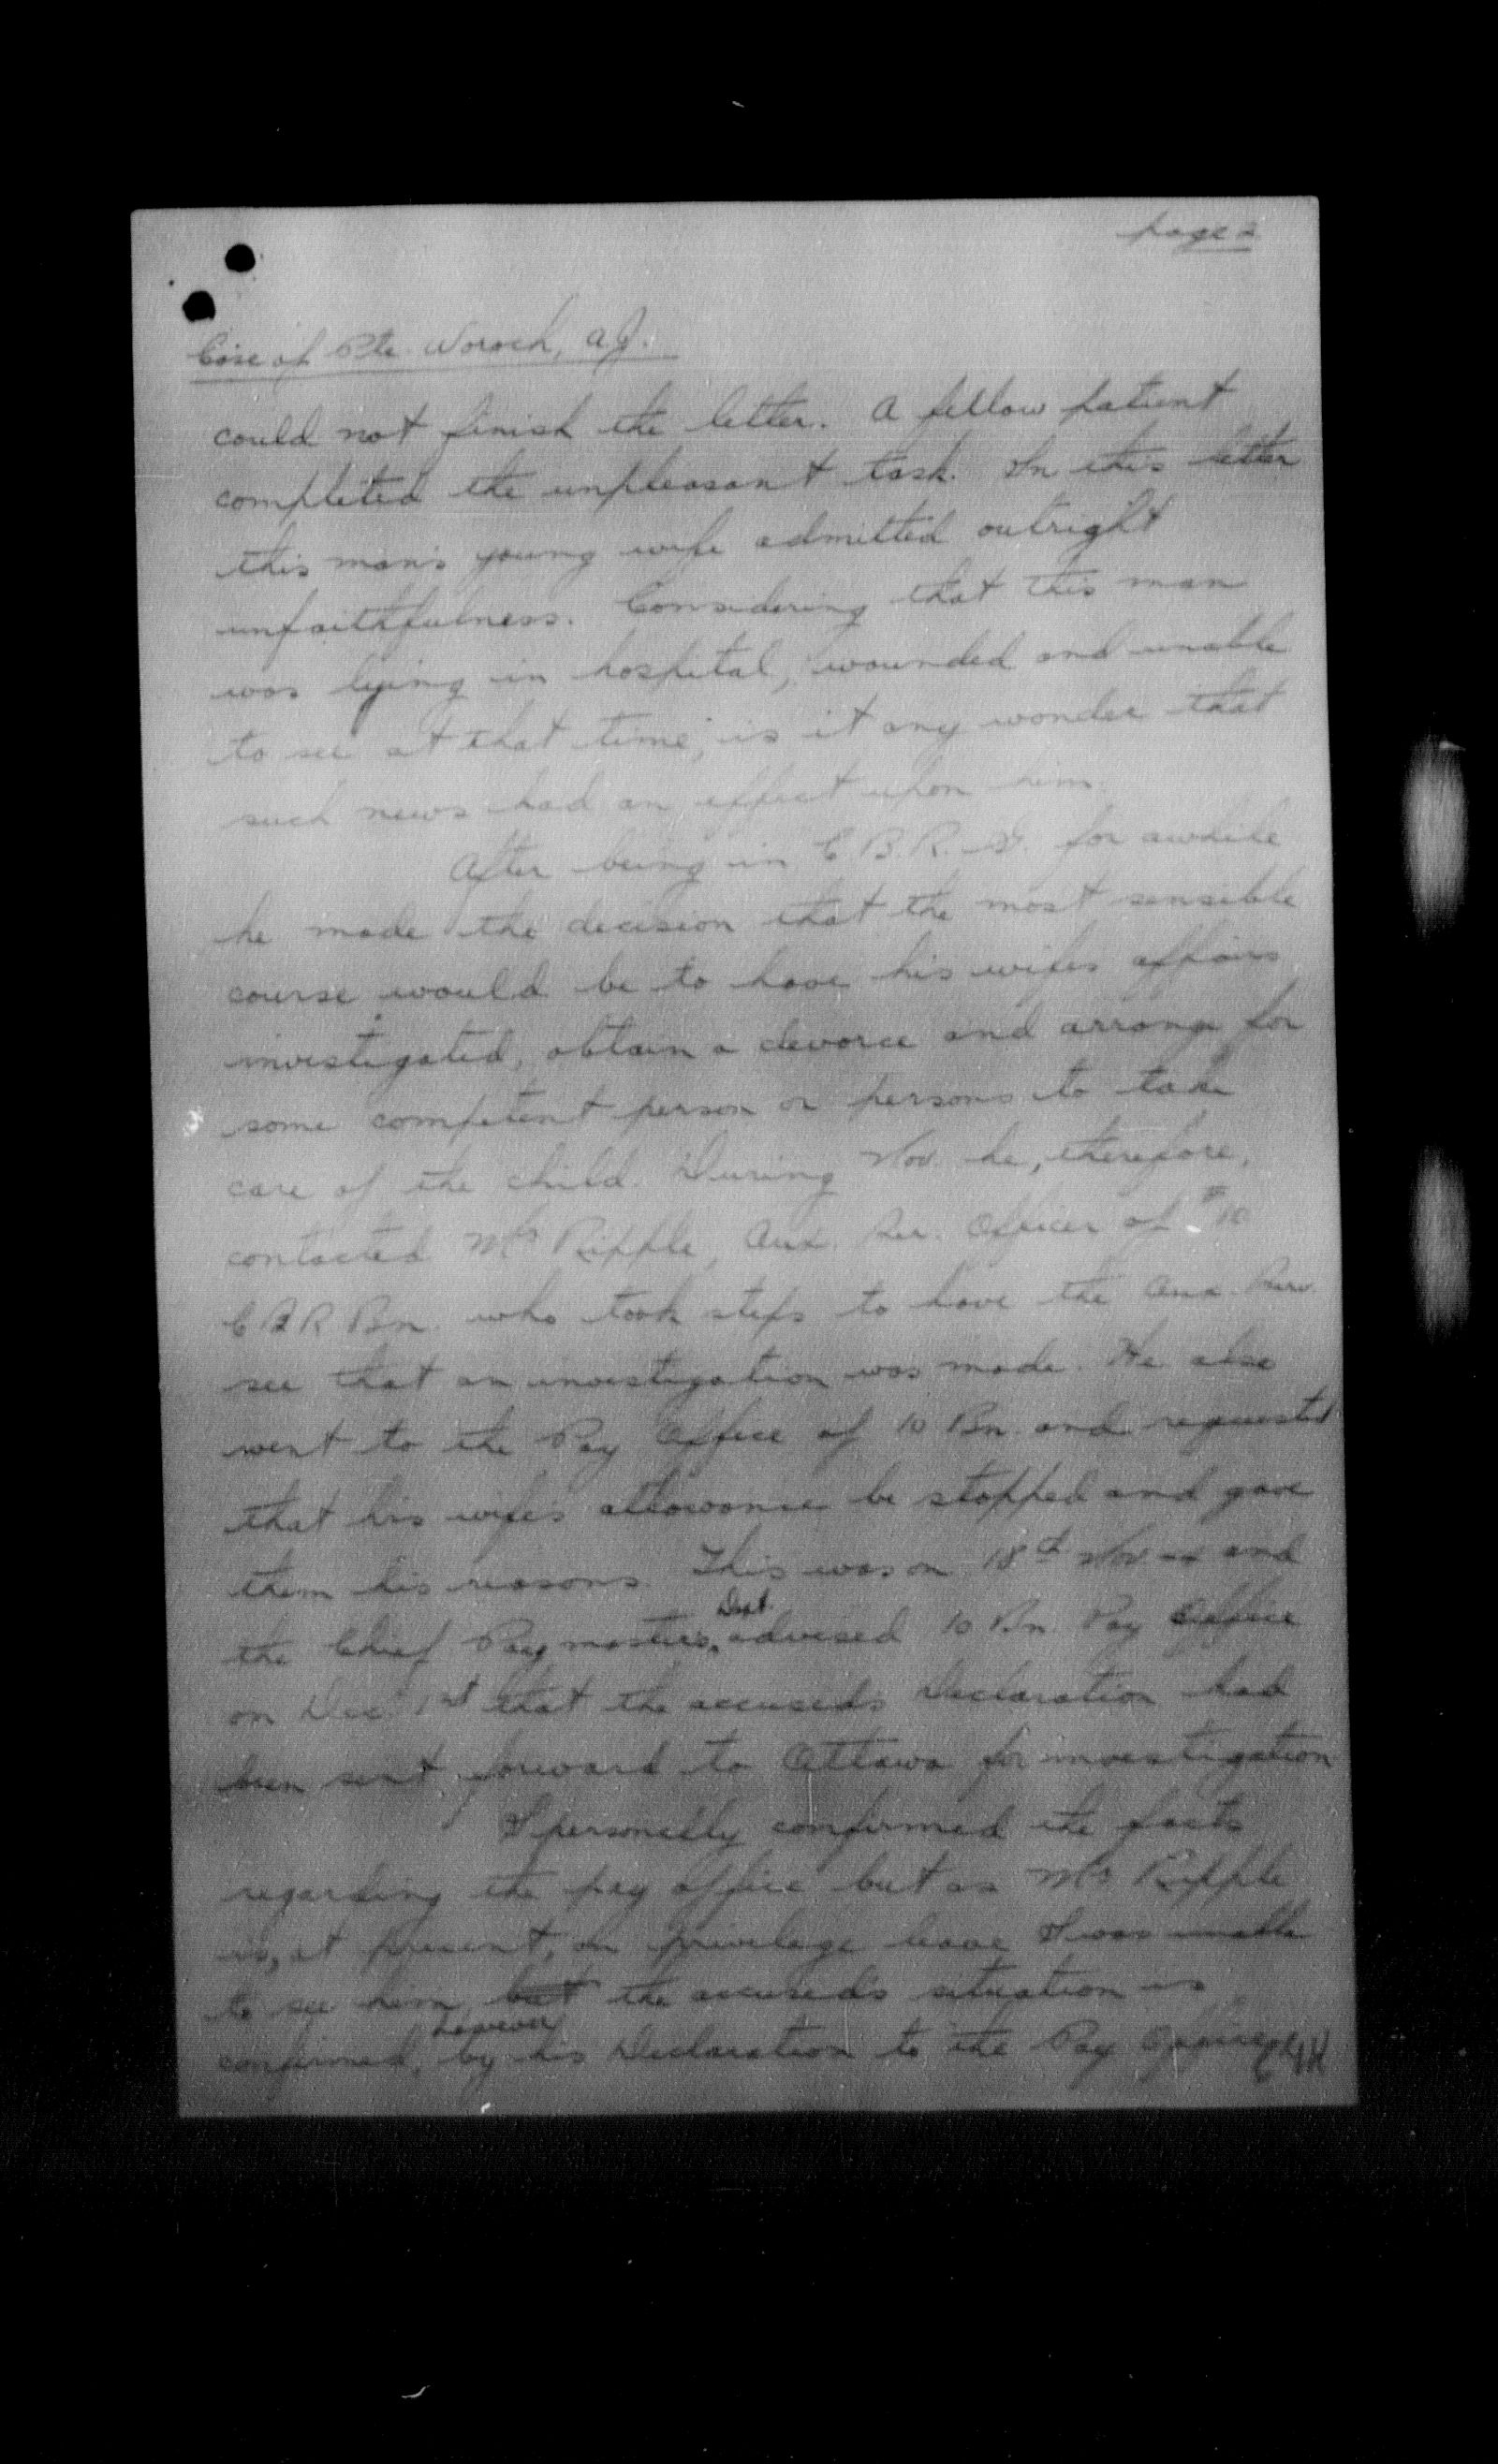 page 2
Case of Pte. Woroch, A.J.
could not finish the letter. A fellow patient
completed the unpleasant task. In this letter
this man's young wife admitted outright
unfaithfulness. Considering that this man
was lying in hospital, wounded and unable
to see at that time, is it any wonder that
such news had an effect upon him.
After being in C.B.R.G. for awhile
he made the decision that the most sensible
course would be to have his wifes affairs
investigated, obtain a devorce and arrange for
some competent person or persons to take
care of the child. During Nov. he, therefore,
contacted Mr Ripple, Aux. Ser. Officer of #10
C B R Bn. who took steps to have the Aux. Serv.
see that an investigation was made. He also
went to the Pay Office of 10 Bn. and requested
that his wife's allowance be stopped and gave
them his reasons. This was on 18th Nov and
the Chief Paymasters Dept. advised 10 Bn. Pay Office
on Dec. 1st that the accused's Declaration had
been sent forward to Ottawa for investigation
I personally confirmed the facts
regarding the pay office but as Mr Ripple
is, at present, on privelage leave I was unable
to see him, but the accused's situation is
confirmed, however by his Declaration to the Pay Office